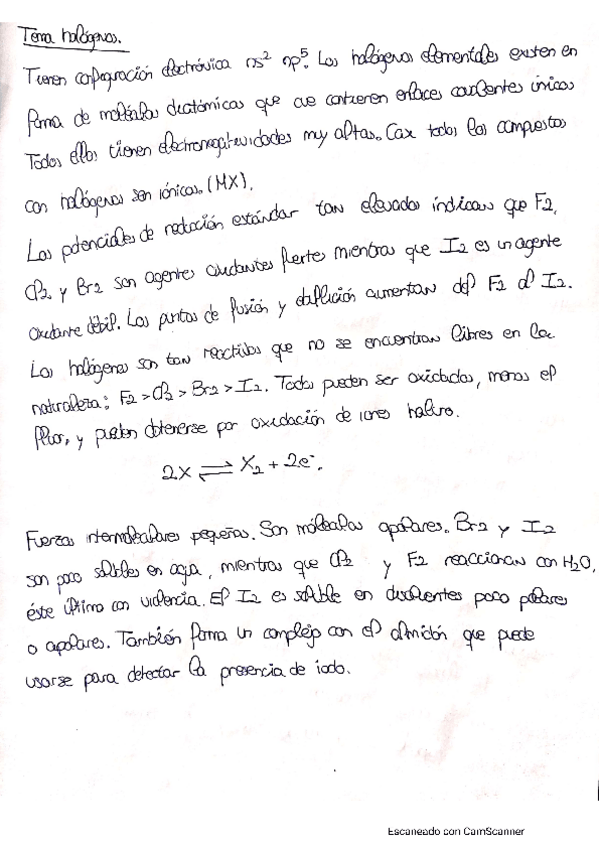 Tema halógenos.
Tienen configuración electrónica ns² np⁵. Los halógenos elementales existen en
forma de moléculas diatómicas que contienen enlaces covalentes únicos
Todos ellos tienen electronegatividades muy altas. Casi todos los compuestos
con halógenos son iónicos. (MX).
Los potenciales de reducción estándar tan elevados indican que F2,
Cl2 y Br2 son agentes oxidantes fuertes mientras que I2 es un agente
oxidante débil. Los puntos de fusión y ebullición aumentan del F2 al I2.
Los halógenos son tan reactivos que no se encuentran libres en la
naturaleza: F2 > Cl2 > Br2 > I2. Todos pueden ser oxidados, menos el
flúor, y pueden obtenerse por oxidación de iones haluro.
2X ⇌ X2 + 2e⁻.
Fuerzas intermoleculares pequeñas. Son moléculas apolares. Br2 y I2
son poco solubles en agua, mientras que Cl2 y F2 reaccionan con H2O,
éste último con violencia. El I2 es soluble en disolventes poco polares
o apolares. También forma un complejo con el almidón que puede
usarse para detectar la presencia de iodo.
Escaneado con CamScanner